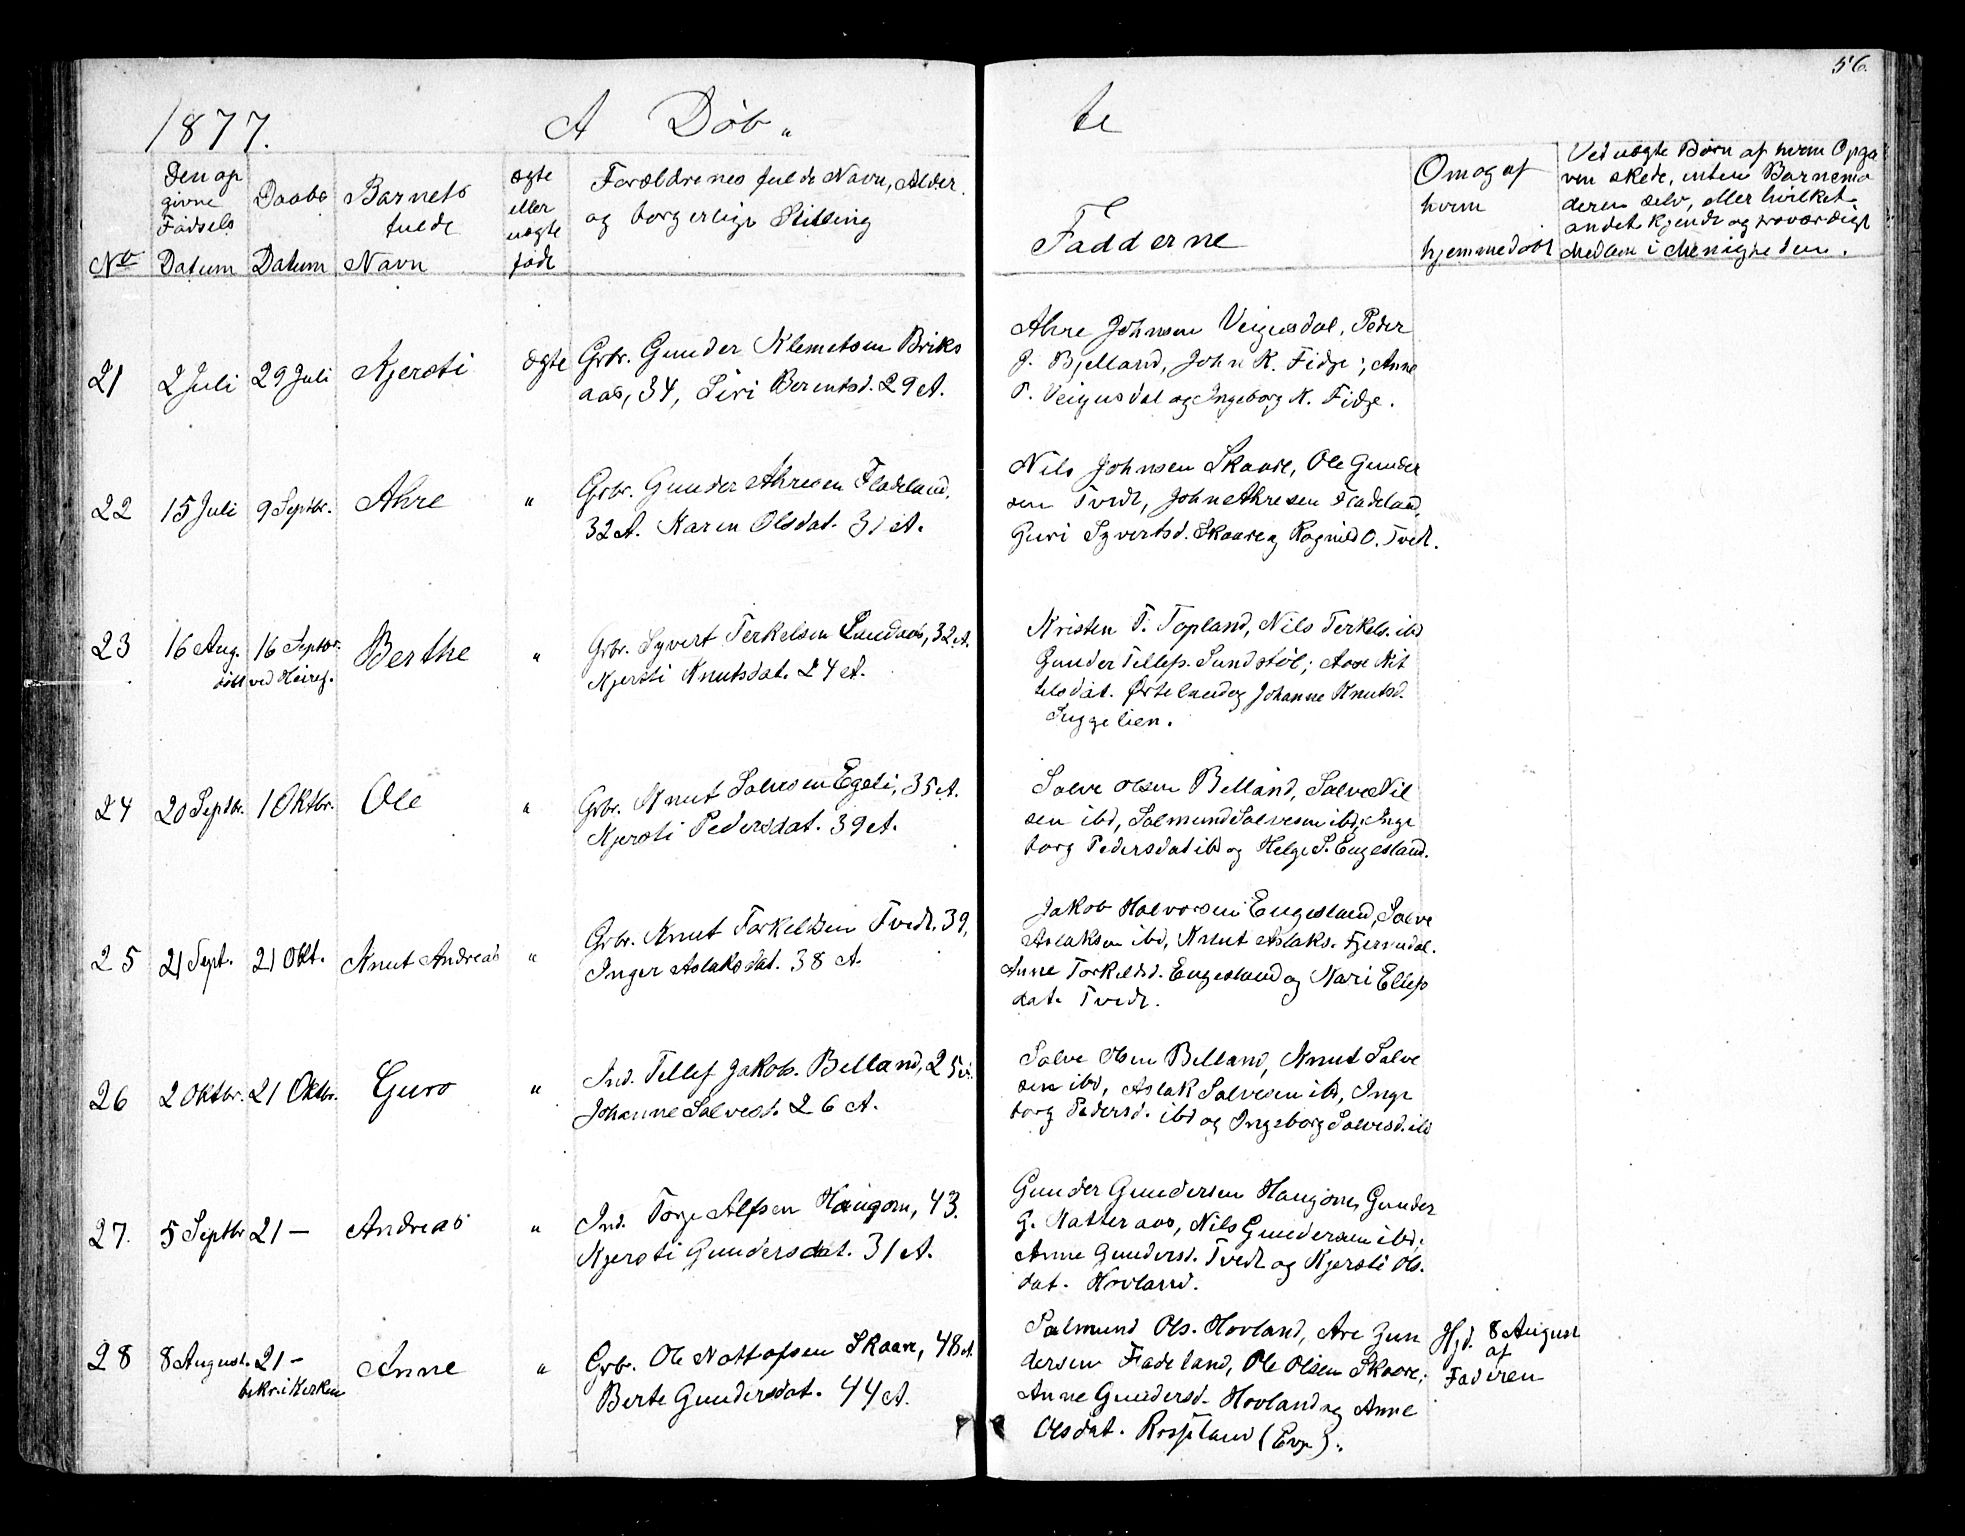 56.
1877. A Døb„ te
Den op
givne
Fødsels
Datum
Daabs
Datum
Barnets
fulde
Navn
ægte
eller
uægte
født
Forældrenes fulde Navn, Alder
og borgerlige Stilling
Fadderne
Om og af
hvem
hjemmedøbt
Ved uægte Børn af hvem Opga
ven skede, enten Barnemo
deren selv, eller hvilket
andet kjendt og troværdigt
Medlem i Menigheden.
No
21 2 Juli 29 Juli Kjersti ægte Grbr. Gunder Klemetsen Briks
aas, 34, Siri Berentsd. 29 A.
Ahre Johnsen Veigusdal, Peder
J. Bjelland, John K. Fidje; Anne
T. Veigusdal og Ingeborg K. Fidje.
22 15 Juli 9 Septbr. Ahre „ Grbr. Gunder Ahresen Fladeland,
32 A. Karen Olsdat. 31 A.
Nils Johnsen Skaare, Ole Gunder
sen Tvedt, John Ahresen Fladeland,
Guri Syvertsd. Skaare og Ragnild O. Tvedt.
23 16 Aug. 16 Septbr. Berthe „ Grbr. Syvert Terkelsen Sundaas, 32 A.
ved Høireg.
Kjersti Knutsdat. 24 A.
Kristen T. Topland, Nils Terkels. ibd
Gunder Tellefs. Sundstøl; Aase Kit
telsdat. Ørteland og Johanne Knutsd.
Suggelien.
24 20 Septbr. 1 Oktbr. Ole „ Grbr. Knut Salvesen Egeli, 35 A.
Kjersti Pedersdat. 39 A.
Salve Olsen Belland, Salve Nil
sen ibd, Salmund Salvesen ibd; Inge
borg Pedersdat ibd og Helge S. Engesland.
25 21 Sept. 21 Okt. Knut Andreas „ Grbr. Knut Torkeldsen Tvedt, 39,
Inger Aslaksdat. 38 A.
Jakob Halvorsen Engesland, Salve
Aslaksen ibd, Knut Aslaks. Tjernedal.
Anne Torkeldsd. Engesland og Mari Ellefs
dat. Tvedt.
26 2 Oktbr. 21 Oktbr. Guro „ Ind. Tellef Jakobs. Belland, 25 A.
Johanne Salvesd. 26 A.
Salve Olsen Belland, Knut Salve
sen ibd, Aslak Salvesen ibd, Inge
borg Pedersd. ibd og Ingeborg Salvesd. ibd
27. 5 Septbr 21 — Andreas „ Ind. Torje Alfsen Haugom, 43.
Kjersti Gundersdat. 31 A.
Gunder Gundersen Haugom, Gunder
G. Natteraas, Nils Gundersen ibd;
Anne Gundersd. Tvedt og Kjersti Ols.
dat. Hovland.
28 8 August. 21 — Anne „ Grbr. Ole Nottolfsen Skaare, 48 A.
bekr. i Kirken
Berte Gundersdat. 44 A.
Salmund Ols. Hovland, Are Gun
dersen Fladeland, Ole Olsen Skaare;
Anne Gundersd. Hovland og Anne
Olsdat. Rosseland (Evje).
Hjd. 8 August
af
Faderen